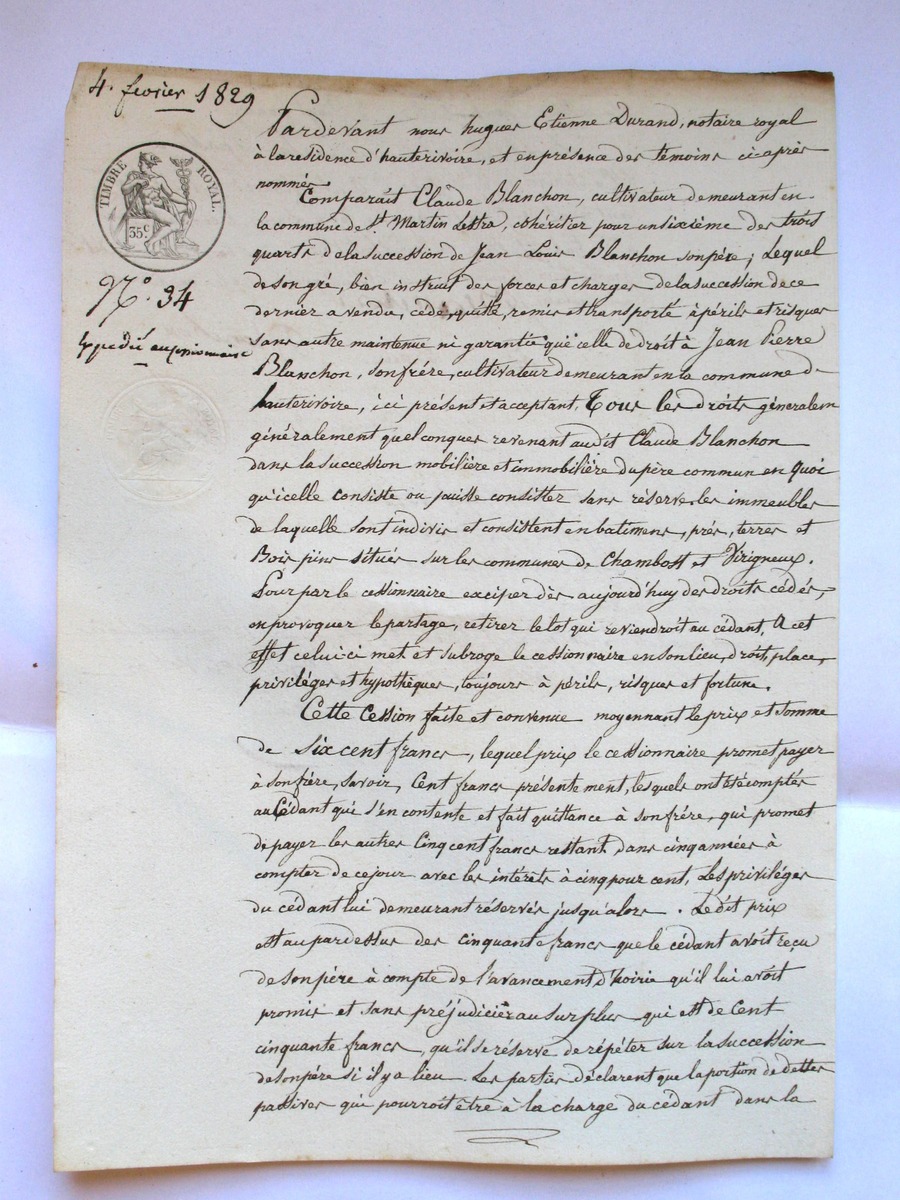 4. fevrier 1829
TIMBRE ROYAL.
35c.
No. 34
Expédié
Pardevant nous hugues Etienne Durand, notaire royal
à la residence d'hauterivoire, et en présence des temoins ci après
nommés
Comparaît Claude Blanchon, cultivateur demeurant en
la commune de St Martin Lestra, cohéritier pour un sixième des trois
quarts de la succession de Jean Louis Blanchon son père; Lequel
de son gré, bien instruit des forces et charges de la succession de ce
dernier a vendu, cédé, quitté, remis et transporté à périls et risques
sans autre maintenue ni garantie que celle de droit à Jean Pierre
Blanchon, son frère, cultivateur demeurant en la commune de
hauterivoire, ici présent et acceptant, Tous les droits généralem
généralement quelconques revenant audit Claude Blanchon
dans la succession mobilière et immobilière du père commun en quoi
qu'icelle consiste ou puisse consister sans réserve, les immeubles
de laquelle sont indivis et consistent en batimens, prés, terres et
Bois pins situés sur les communes de Chambost et Virigneux.
Pour par le cessionnaire exciper dès aujourd'huy des droits cédés,
en provoquer le partage, retirer le lot qui reviendroit au cédant, A cet
effet celui-ci met et subroge le cessionnaire en son lieu, droit, place,
priviléges et hypothèques, toujours à périls, risques et fortune.
Cette Cession faite et convenue moyennant le prix et somme
de six cent francs, lequel prix le cessionnaire promet payer
à son frère, savoir, Cent francs présentement, lesquels ont été comptés
au Cédant qui s'en contente et fait quittance à son frére, qui promet
de payer les autres Cinq cent francs restant, dans cinq années à
compter de ce jour avec les intérêts à cinq pour cent, Les priviléges
du cédant lui demeurant réservés jusqu'alors. Le dit prix
est au par dessus des cinquante francs que le cédant avoit reçu
de son père à compte de l'avancement d'hoirie qu'il lui avoit
promis et sans préjudicier au surplus qui est de Cent
cinquante francs, qu'il se réserve de répéter sur la succession
de son père si il y a lieu. Les parties déclarent que la portion de dettes
passives qui pourroit être à la charge du cédant dans la